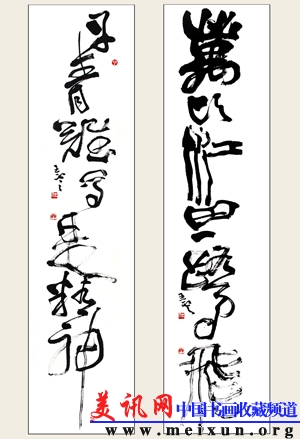 萬頃江田一鷺飛
丹青難写是精神
美讯网
中国书画收藏频道
www.meixun.org